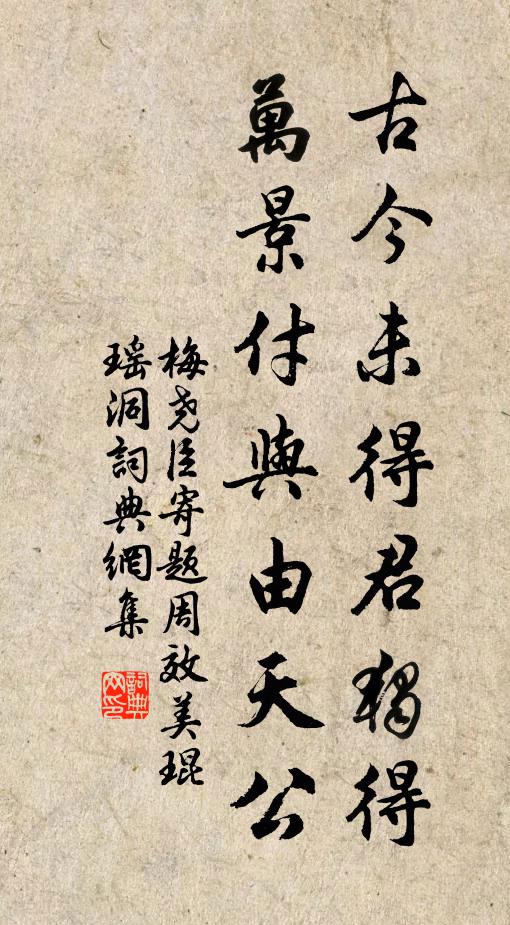 古今未得君獨得
萬景付與由天公
梅堯臣寄題周效美琨
瑶洞詞典網集
詞典网印